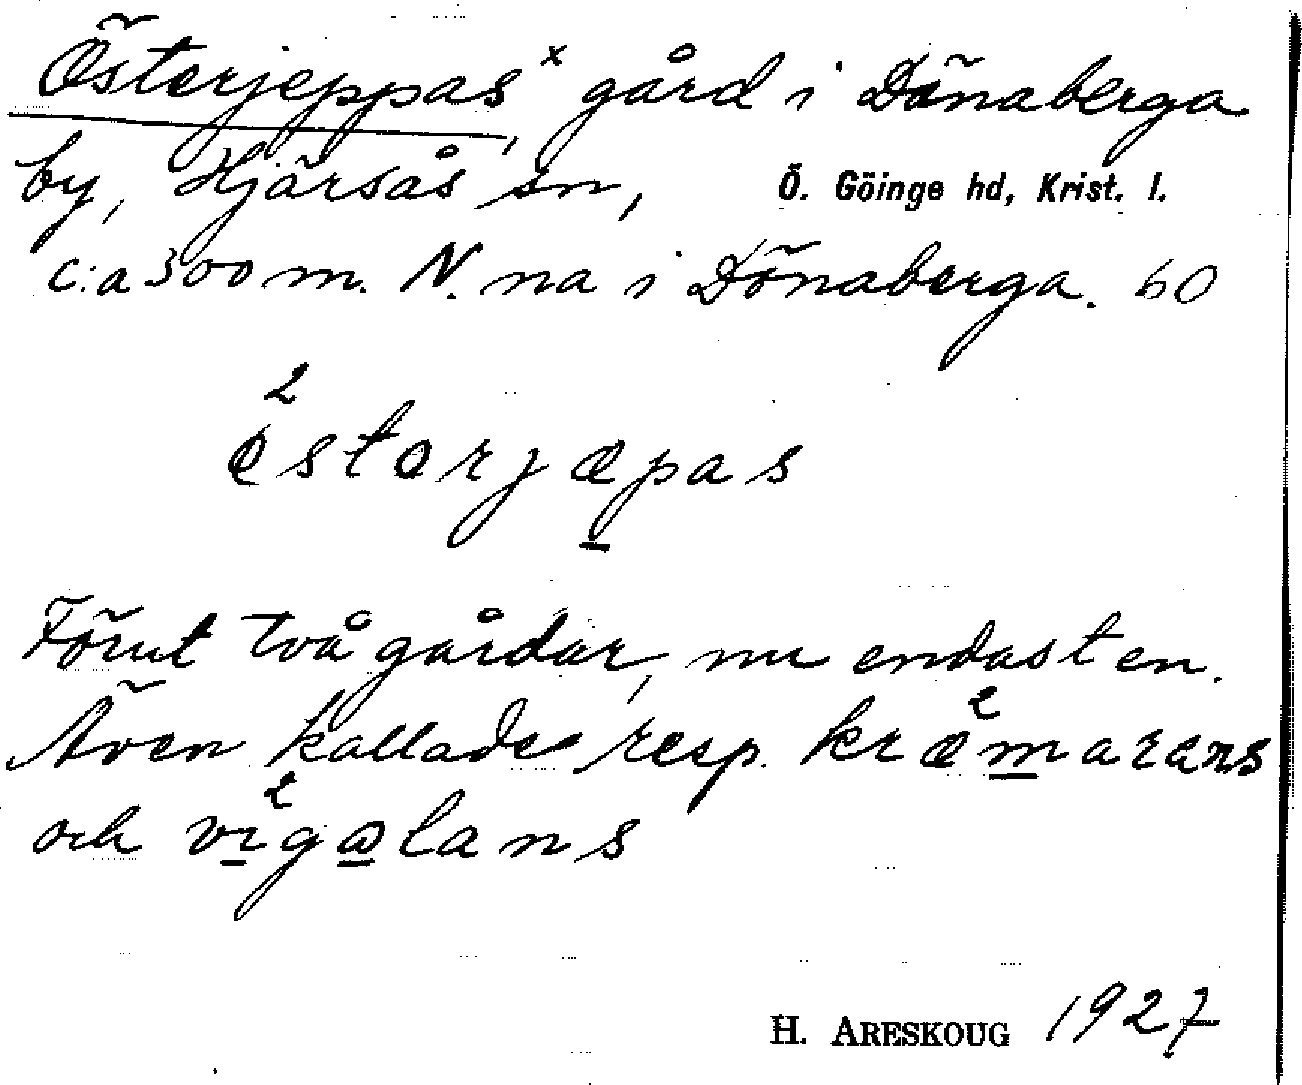 Österjeppas x gård i Dönaberga
by, Hjärsås sn, Ö. Göinge hd, Krist. l.
c:a 300 m. N. na i Dönaberga. 60
2
østerjæpas
Förut två gårdar, nu endast en.
Även kallade resp. kræmarens
och vigølans
H. ARESKOUG 1927